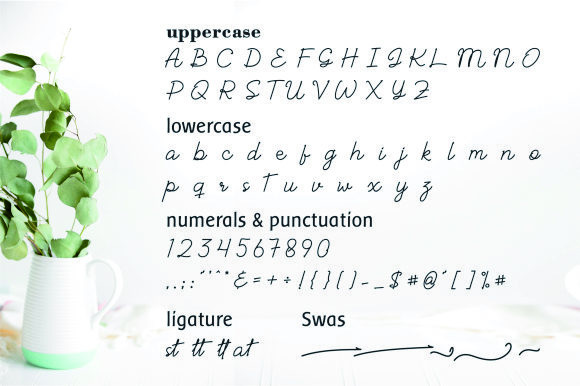 uppercase
A B C D E F G H I J K L M N O
P Q R S T U V W X Y Z
lowercase
a b c d e f g h i j k l m n o
p q r s T u v w x y z
numerals & punctuation
1 2 3 4 5 6 7 8 9 0
. , ; : ' ' ^ * & = + ÷ ! { } ( ) - _ $ # @ ´ [ ] % #
ligature Swas
st tt tt at